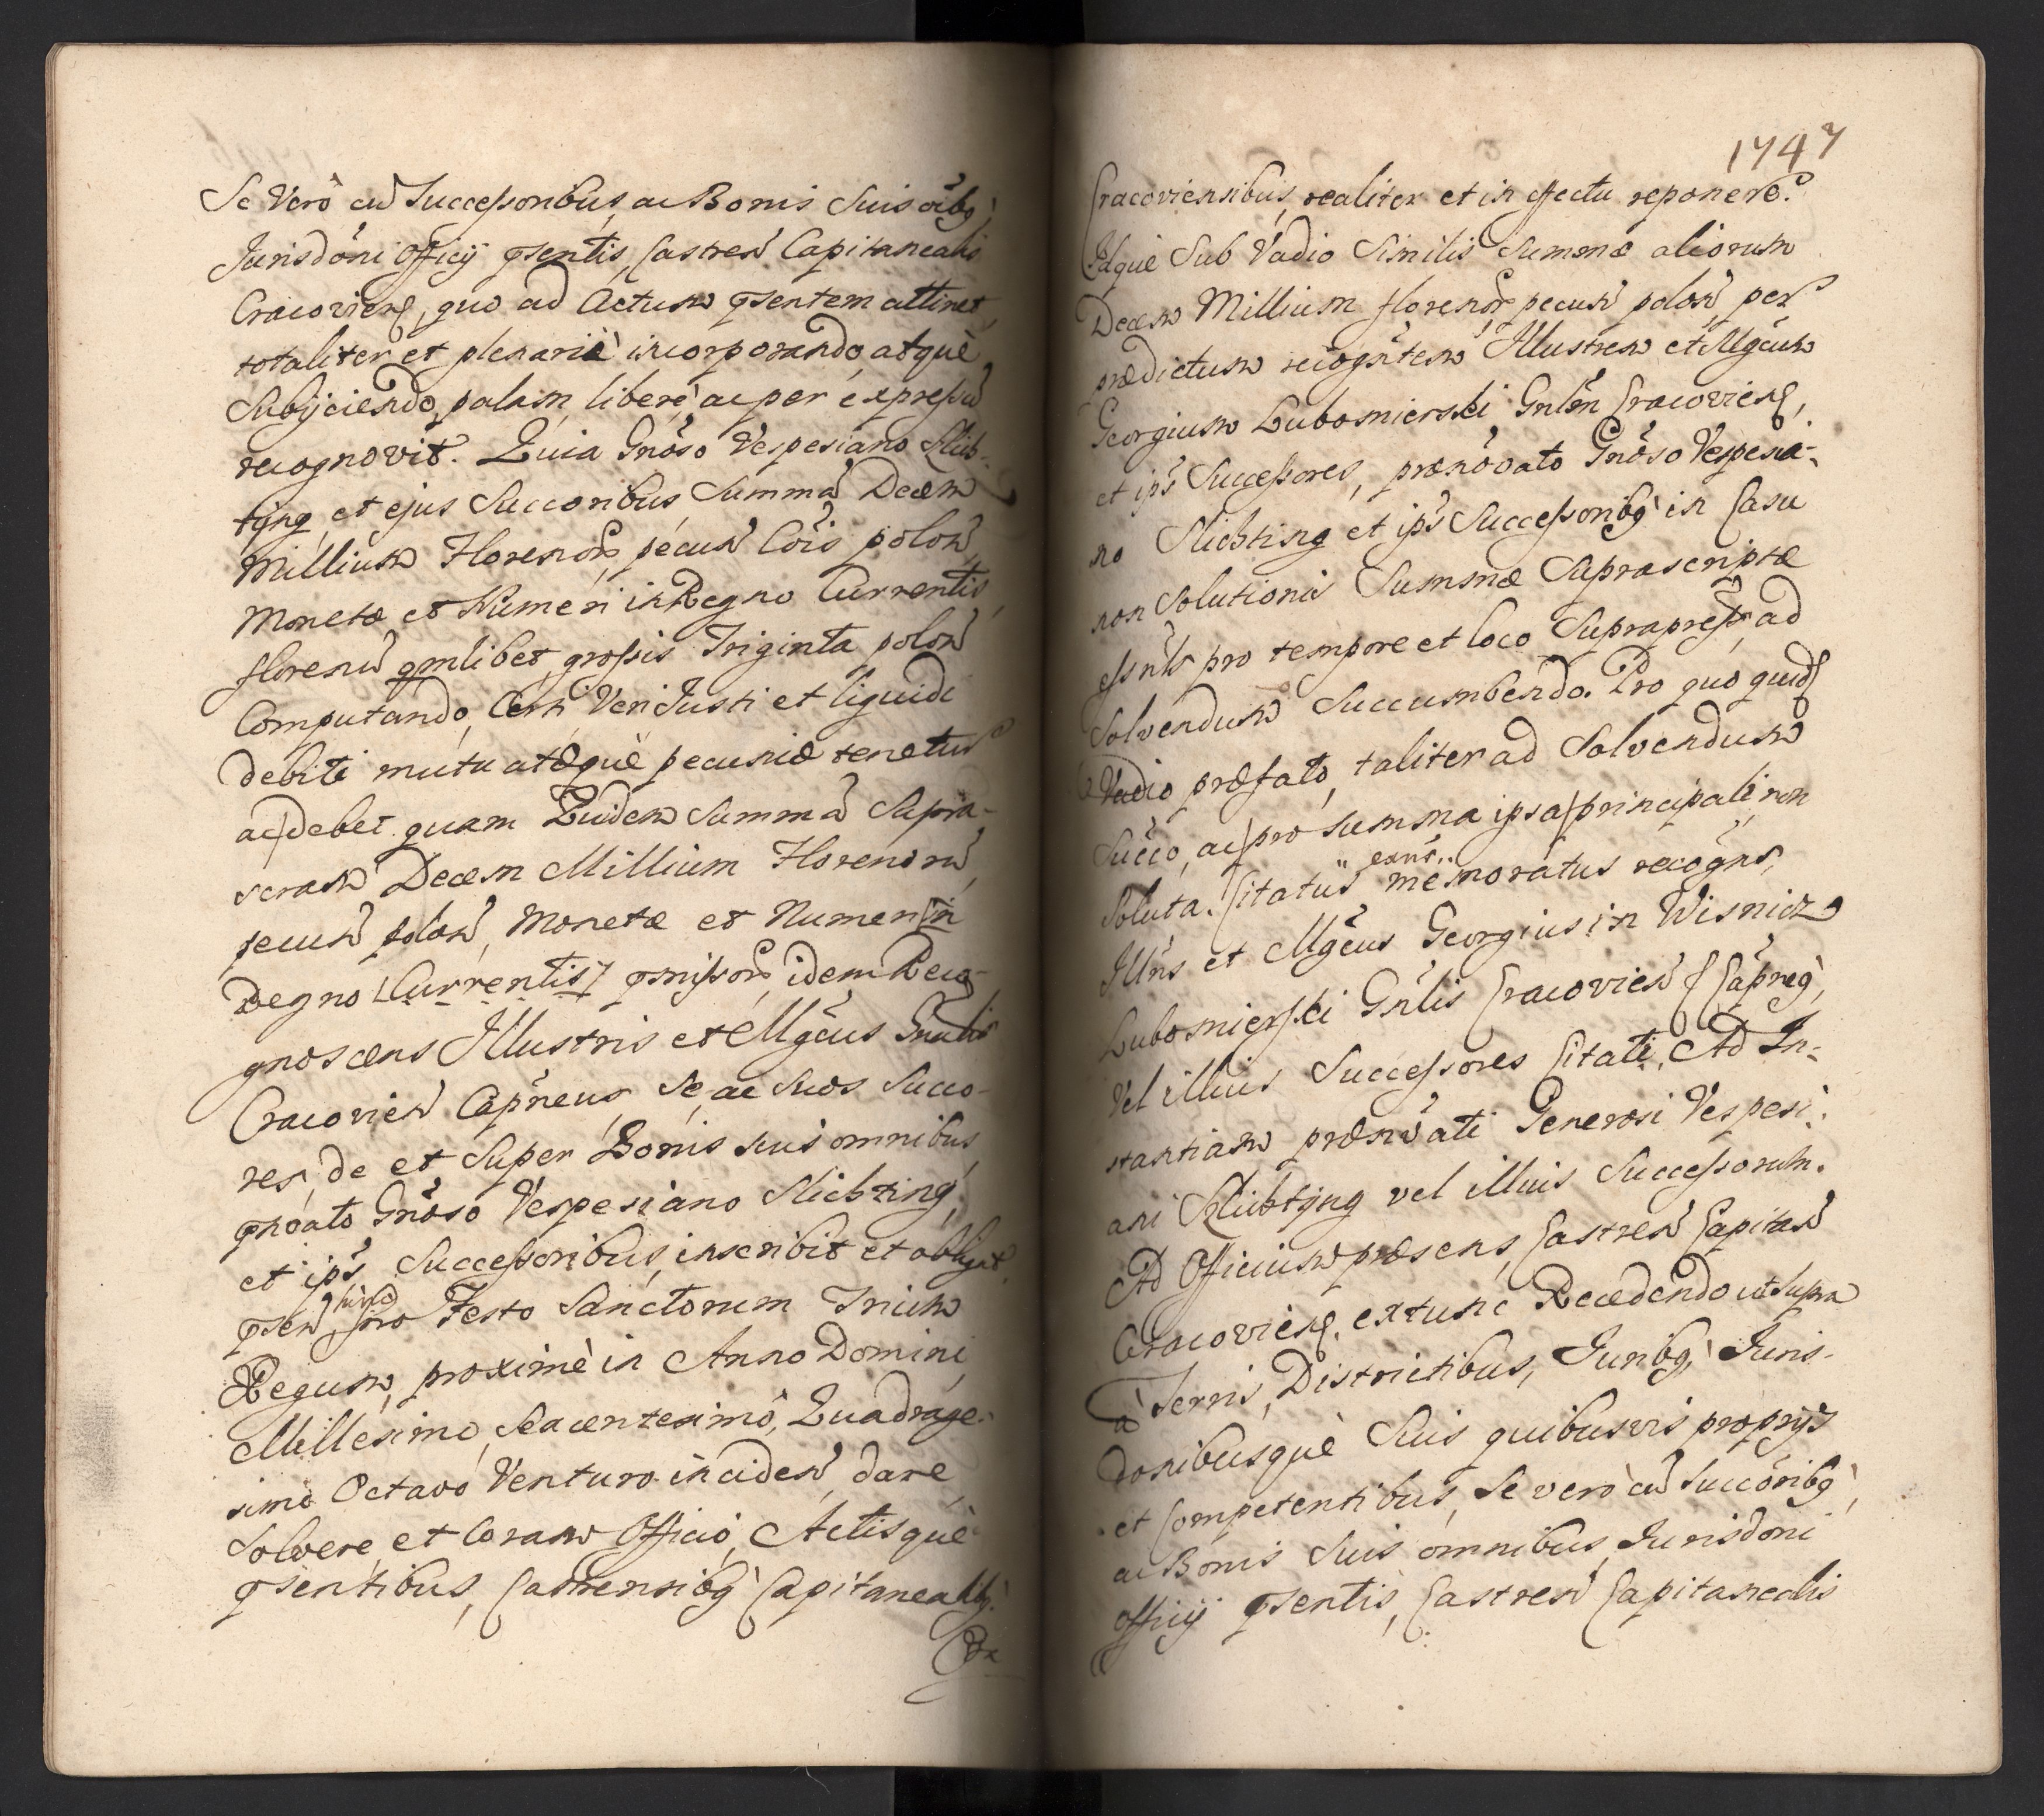 Se Verò cũ Successoribus, ac Bonis Suis oĩbq̀
Jurisdõni Officÿ p̃sentis, Castreñ Capitanealis
Cracovieñ, quo ad Actum p̃sentem attinet,
totaliter et plenariè incorporando, atquè
Subÿciendo, palam, liberè ac per expressũ
recognovit. Quia Gnõso Vespesiano Slich-
tyng, et ejus Succoribus, Summã Decem
Millium Florenor, pecuñ Cõis poloñ
Monetæ et Numeri in Regno Currentis,
florenũ qmlibet, grossis Triginta poloñ
Computando, Certi Veri Justi et liquidi
debiti mutuatæquè pecuniæ tenetur
ac debet. quam Quidem Summã Supra-
scram Decem Millium Florenorũ,
pecuñ poloñ, Monetæ et Numeri in
Regno Currentis p̃missor, idem Reco-
gnoscens Jllustris et Mgc̃us Gnalis
Cracovieñ Capñeus, Se, ac Suos Succo-
res, de et Super Bonis suis omnibus
p̃noato Gnõso Vespesiano Slichting,
et ips̃ Successoribus, inscribit et obligat,
p̃señ pro Festo Sanctorum Trium
Regum, proximè in Anno Domini
Millesimo, Sexcentesimò, Quadrage-
simo Octavo Venturo incideñ, dare,
Solvere, et Coram Officio, Actisquè
p̃sentibus, Castrensibq̀ Capitanealibq̀.
1747
Cracoviensibus, realiter et in effectu reponere.
Jdquè Sub Vadio Similis Summæ aliorum
Decem Millium florenor pecuñ poloñ, per
prædictum recogñtem Jllustrem et Mgc̃um
Georgium Lubomierski Gnlẽn Cracovieñ,
et ips̃ Successores, prænõvato Gnõso Vespesia-
no Slichting et ips̃ Successoribq̀ in Casu
non Solutionis Summæ Suprascriptæ
pro tempore et loco Suprapress, ad
Solvendum Succumbendo. Pro quo quid
Vadio præfato, taliter ad Solvendum
Succo, ac pro summa ipsa principali non
Soluta. Citatus memoratus recogñs,
Jllñs et Mgc̃us Georgius in Wisnicz
Lubomierski Gnlis Cracovieñ Capñeq̀,
Vel illius Successores Citati, Ad In-
stantiam prænõvati Generosi Vespesi-
ani Slichtyng vel illius Successorum.
Ad Officium præsens, Castreñ Capitañ
Cracovieñ. extunc Recedendo ut Supra
à Terris, Districtibus, Juribq̀, Juris-
donibusquè Suis quibusvis proprÿs
et Competentibus, Se verò cũ Succõribq̀,
ac Bonis Suis omnibus, Jurisdoni
Officÿ p̃sentis, Castreñ Capitanealis